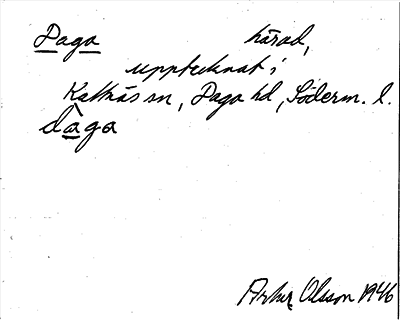 Daga härad,
upptecknat i
Kattnäs sn, Daga hd, Söderm. l.
dàga
Artur Olsson 1946